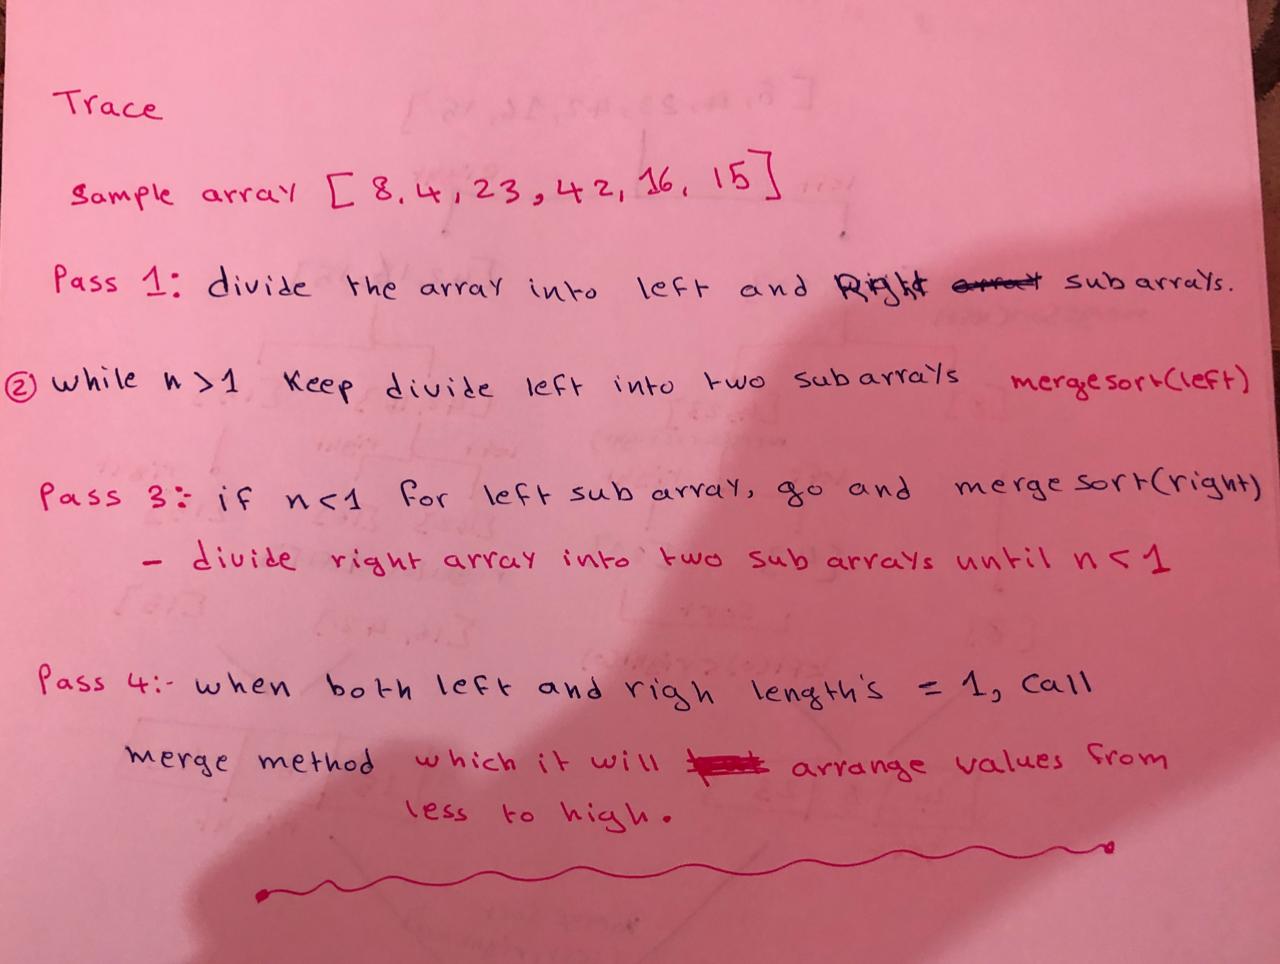 Trace
Sample array [8, 4, 23, 42, 16, 15]
Pass 1: divide the array into left and Right sub arrays.
② while n > 1 Keep divide left into two sub arrays mergesort(left)
Pass 3:- if n < 1 for left sub array, go and merge sort(right)
- divide right array into two sub arrays until n < 1
Pass 4:- when both left and righ length's = 1, call
merge method which it will arrange values from
less to high.